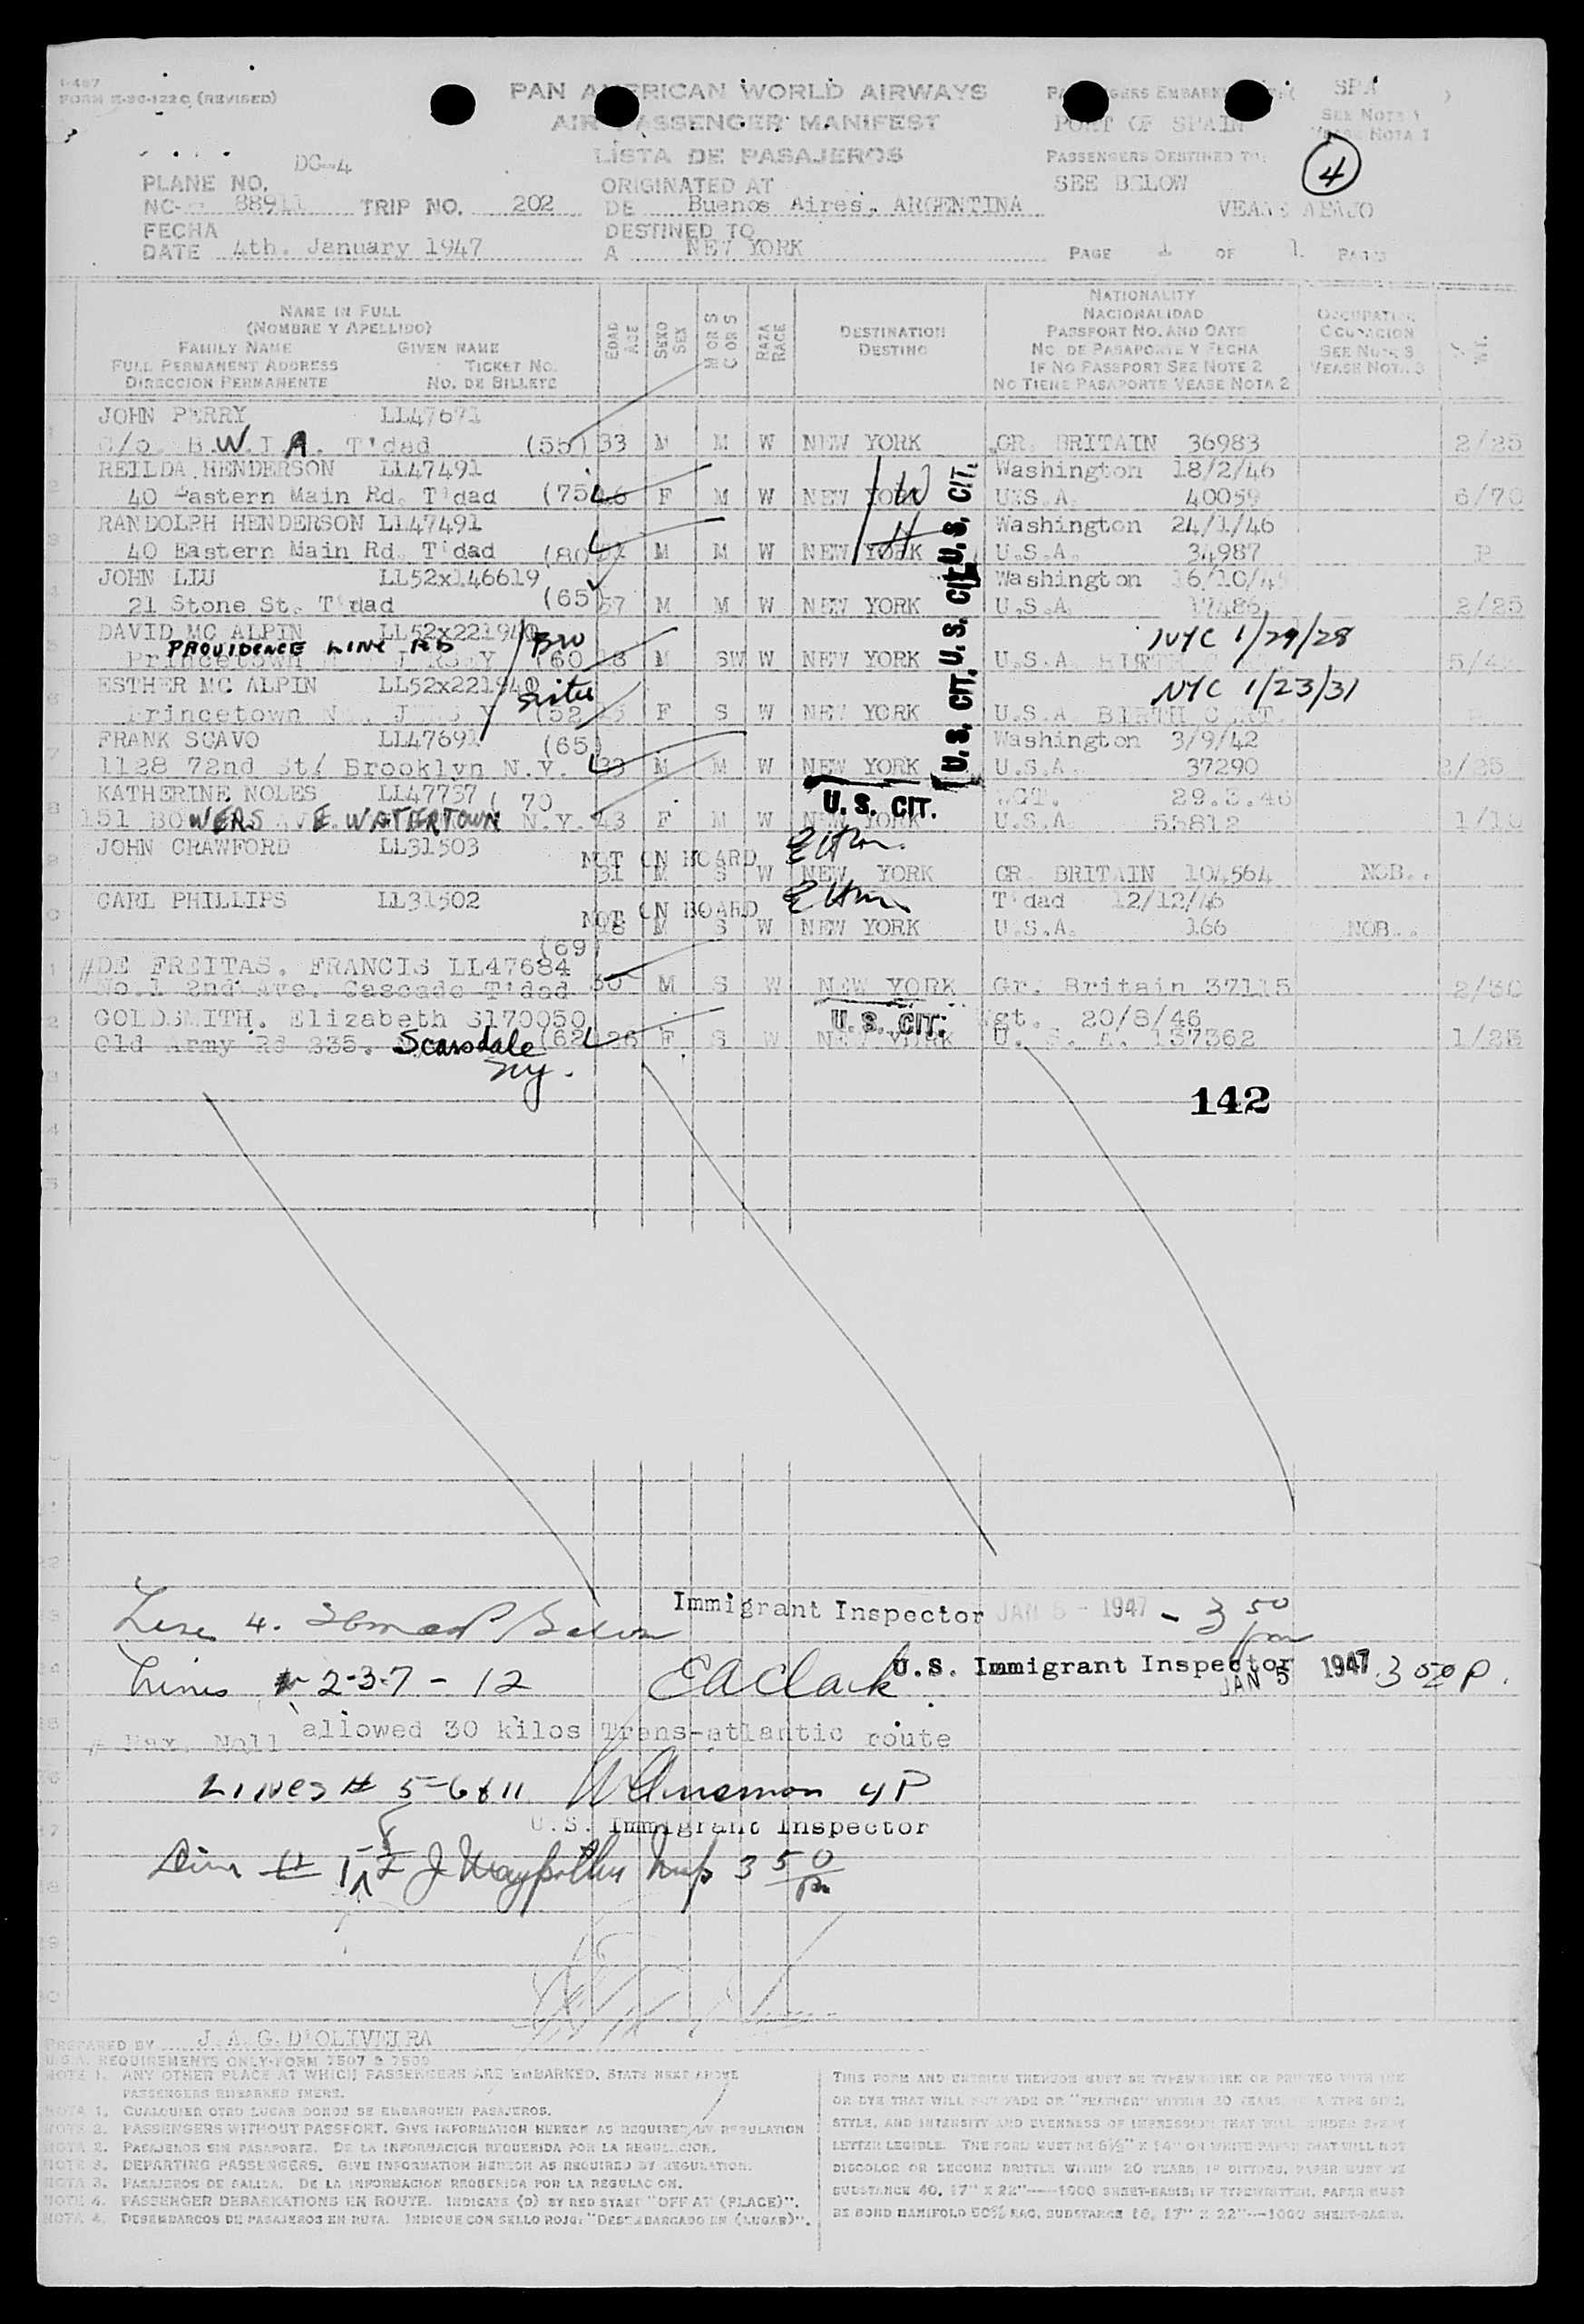 I-487
FORM E-SC-122C (REVISED)
PAN AMERICAN WORLD AIRWAYS
AIR PASSENGER MANIFEST
LISTA DE PASAJEROS
SPA
PORT OF SPAIN
SEE NOTE 1
VEASE NOTA 1
PASSENGERS DESTINED TO:
SEE BELOW
4
VEASE ABAJO
DC-4
PLANE NO.
NC- 88911 TRIP NO. 202
FECHA
DATE 4th. January 1947
ORIGINATED AT
DE Buenos Aires, ARGENTINA
DESTINED TO
A NEW YORK
PAGE 1 OF 1 PAGES
NAME IN FULL
(NOMBRE Y APELLIDO)
FAMILY NAME GIVEN NAME
FULL PERMANENT ADDRESS TICKET NO.
DIRECCION PERMANENTE NO. DE BILLETE
EDAD AGE
SEXO SEX
M OR S C OR S
RAZA RACE
DESTINATION
DESTINO
NATIONALITY
NACIONALIDAD
PASSPORT NO. AND DATE
NO. DE PASAPORTE Y FECHA
IF NO PASSPORT SEE NOTE 2
NO TIENE PASAPORTE VEASE NOTA 2
OCCUPATION
OCUPACION
SEE NOTE 3
VEASE NOTA 3
JOHN PERRY LL47671
C/o. B.W.I.A. T'dad (55) 33 M M W NEW YORK GR. BRITAIN 36983 2/25
REILDA HENDERSON LL47491 Washington 18/2/46
40 Eastern Main Rd. T'dad (75) F M W NEW YORK U.S.A. 40059 6/70
RANDOLPH HENDERSON LL47491 Washington 24/1/46
40 Eastern Main Rd. T'dad (80) M M W NEW YORK U.S.A. 34987
JOHN LIU LL52x146619 Washington
21 Stone St. T'dad (65) 57 M M W NEW YORK U.S.A. 17486 2/25
DAVID MC ALPIN LL52x221940 Bro NYC 1/29/28
PROVIDENCE LINE RD
Princetown N. JERSEY (60) M SW W NEW YORK U.S.A. BIRTH
ESTHER MC ALPIN LL52x221940 Sister NYC 1/23/31
Princetown N. JERSEY (52) F S W NEW YORK U.S.A. BIRTH CERT.
FRANK SCAVO LL47691 (65) Washington 3/9/42
1128 72nd St/ Brooklyn N.Y. M M W NEW YORK U.S.A. 37290 2/25
KATHERINE NOLES LL47737 ( 70 WGT. 29.3.46
151 BOWERS AVE. WATERTOWN N.Y. 43 F M W NEW YORK U.S.A. 55812
U. S. CIT.
U. S. CIT.
U. S. CIT.
U. S. CIT.
U. S. CIT.
JOHN CRAWFORD LL31503 NOT ON BOARD
31 M S W NEW YORK GR. BRITAIN 104564 NOB..
CARL PHILLIPS LL31502 NOT ON BOARD T'dad 12/12/46
M S W NEW YORK U.S.A. 166 NOB...
(69)
#DE FREITAS. FRANCIS LL47684
No.1 2nd Ave. Cascade T'dad 30 M S W NEW YORK Gr. Britain 37115 2/30
GOLDSMITH. Elizabeth S170050 U. S. CIT. Wgt. 20/8/46
Old Army Rd 235. Scarsdale (62) 26 F S W NEW YORK U. S. A. 137362
NY.
142
Immigrant Inspector JAN 5 - 1947 - 3 50 pm
Line 4.
Lines 2-3-7-12 EA Clark U.S. Immigrant Inspector JAN 5 1947 3 50 P.
# Max. Noll allowed 30 kilos Trans-atlantic route
Lines # 5-6 & 11 4 P
U.S. Immigrant Inspector
Line # 1 Insp 3 50 pm
PREPARED BY J. A. G. D'OLIVEIRA
U.S.A. REQUIREMENTS ONLY-FORM 7507 & 7509
NOTE 1. ANY OTHER PLACE AT WHICH PASSENGERS ARE EMBARKED, STATE NEXT ABOVE
PASSENGERS EMBARKED THERE.
NOTA 1. CUALQUIER OTRO LUGAR DONDE SE EMBARQUEN PASAJEROS.
NOTE 2. PASSENGERS WITHOUT PASSPORT. GIVE INFORMATION HEREON AS REQUIRED BY REGULATION
NOTA 2. PASAJEROS SIN PASAPORTE. DE LA INFORMACION REQUERIDA POR LA REGULACION.
NOTE 3. DEPARTING PASSENGERS. GIVE INFORMATION HEREON AS REQUIRED BY REGULATION.
NOTA 3. PASAJEROS DE SALIDA. DE LA INFORMACION REQUERIDA POR LA REGULACION.
NOTE 4. PASSENGER DEBARKATIONS EN ROUTE. INDICATE (D) BY RED STAMP "OFF AT (PLACE)".
NOTA 4. DESEMBARCOS DE PASAJEROS EN RUTA. INDIQUE CON SELLO ROJO: "DESEMBARCADO EN (LUGAR)".
THIS FORM AND ENTRIES THEREON MUST BE TYPEWRITTEN OR PRINTED WITH INK
OR DYE THAT WILL NOT FADE OR "FEATHER" WITHIN 20 YEARS, IN A TYPE SIZE,
STYLE, AND INTENSITY AND EVENNESS OF IMPRESSION THAT WILL RENDER EVERY
LETTER LEGIBLE. THE FORM MUST BE 8½" X 14" ON WHITE PAPER THAT WILL NOT
DISCOLOR OR BECOME BRITTLE WITHIN 20 YEARS. IF DITTOED, PAPER MUST BE
SUBSTANCE 40, 17" X 22"----1000 SHEET-BASIS; IF TYPEWRITTEN, PAPER MUST
BE BOND MANIFOLD 50% RAG, SUBSTANCE 16, 17" X 22"---1000 SHEET-BASIS.